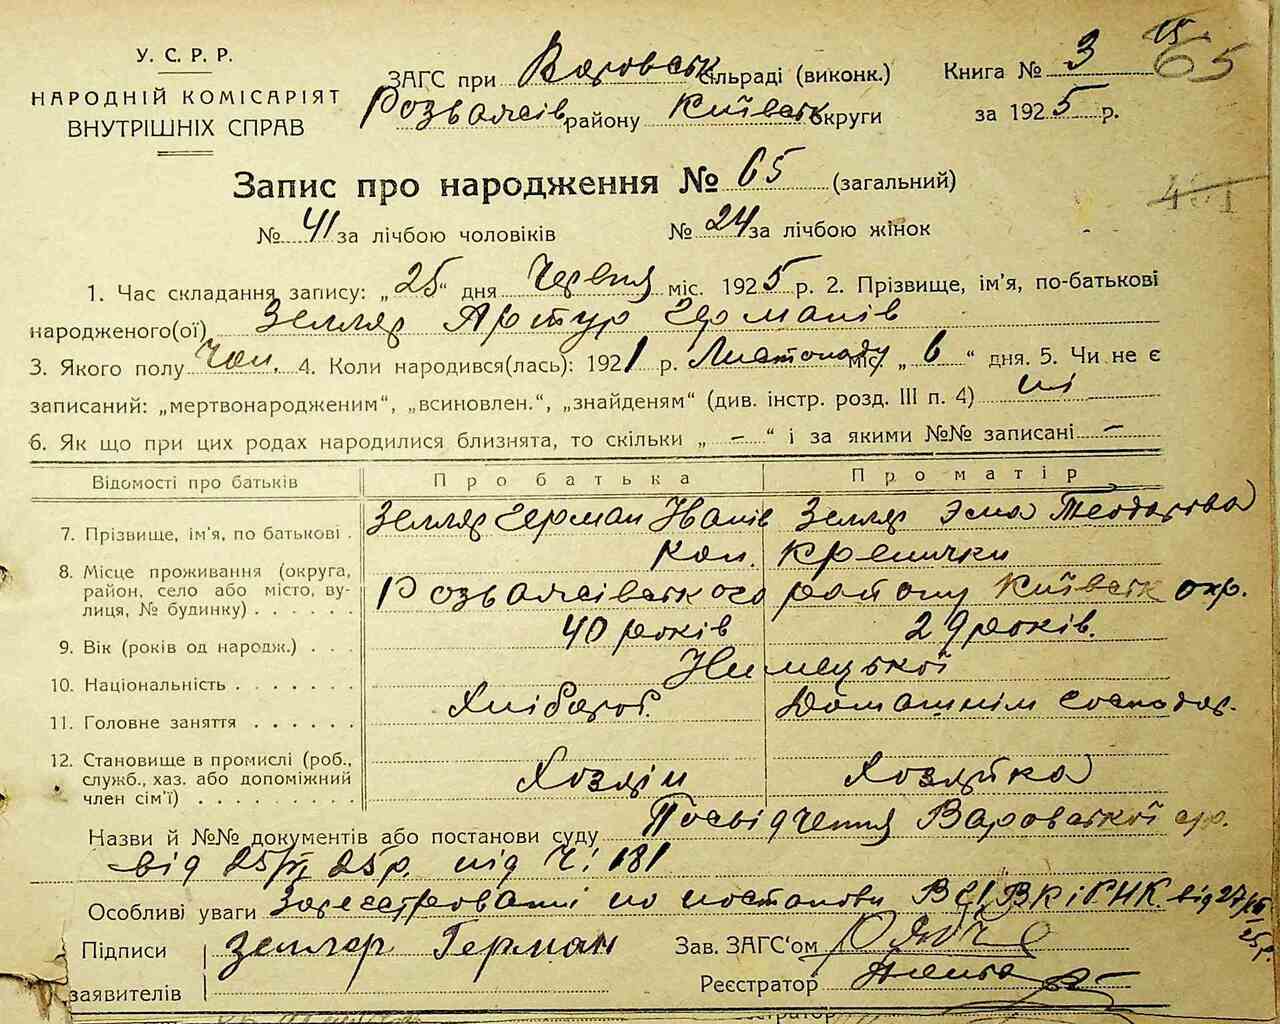 У. С. Р. Р.
НАРОДНІЙ КОМІСАРІЯТ
ВНУТРІШНІХ СПРАВ
ЗАГС при Варовськ сільраді (виконк.)
Розважів району Київськ округи
Книга № 3
за 1925 р.
65
Запис про народження № 65 (загальний)
№ 41 за лічбою чоловіків № 24 за лічбою жінок
1. Час складання запису: „25“ дня Червня міс. 1925 р. 2. Прізвище, ім'я, по-батькові
народженого(ої) Зелляр Артур Германів
3. Якого полу Чол. 4. Коли народився(лась): 1921 р. Листопаду міс. „6“ дня. 5. Чи не є
записаний: „мертвонародженим“, „всиновлен.“, „знайденям“ (див. інстр. розд. III п. 4) ні
6. Як що при цих родах народилися близнята, то скільки „ – “ і за якими №№ записані –
Відомості про батьків Про батька Про матір
7. Прізвище, ім'я, по батькові . Зелляр Герман Іванів Зелляр Эма Теодорова
8. Місце проживання (округа, район, село або місто, вулиця, № будинку) . . . . . кол. Кренички
Розважівського району Київськ окр.
9. Вік (років од народж.) . . . 40 років 29 років.
10. Національність . . . . . . . Нимецької
11. Головне заняття . . . . . . Хлібороб. Домашнім господар.
12. Становище в промислі (роб., служб., хаз. або допоміжний член сім'ї) . . . . . . . . . Хозяін Хозяйка
Назви й №№ документів або постанови суду Посвідчення Варовської с/р.
від 25/VI 25 р. під Ч: 181
Особливі уваги Зареєстровані по постанови ВУЦВК і РНК від 27/
25 р.
Підписи Зеллер Герман Зав. ЗАГС'ом
заявителів Реєстратор